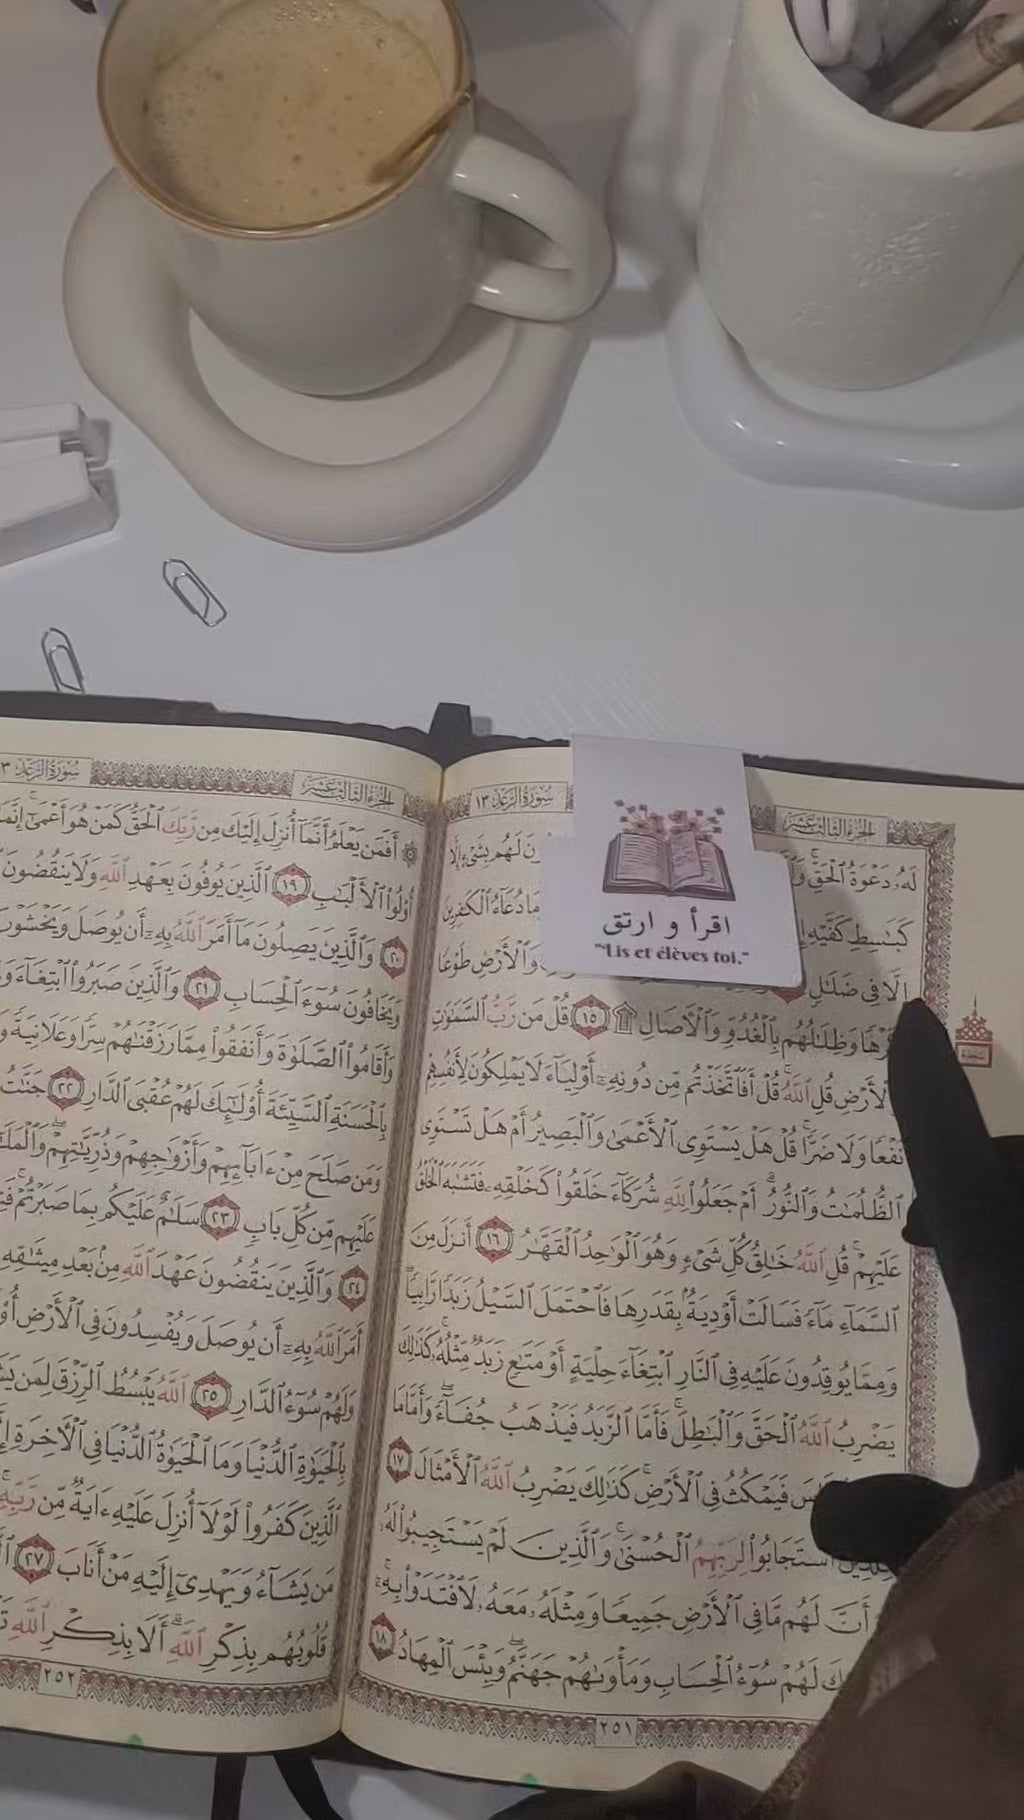 الجزء الثالث عشر
سورة الرعد ١٣
لَهُۥ دَعْوَةُ ٱلْحَقِّ
ونَ لَهُم بِشَىْءٍ إِلَّا
كَبَٰسِطِ كَفَّيْهِ إِ
مَا دُعَآءُ ٱلْكَٰفِرِينَ
إِلَّا فِى ضَلَٰلٍ
وَٱلْأَرْضِ طَوْعًا
رْهًا وَظِلَٰلُهُم بِٱلْغُدُوِّ وَٱلْءَاصَالِ ۩ ١٥ قُلْ مَن رَّبُّ ٱلسَّمَٰوَٰتِ
ٱلْأَرْضِ قُلِ ٱللَّهُ ۚ قُلْ أَفَٱتَّخَذْتُم مِّن دُونِهِۦٓ أَوْلِيَآءَ لَا يَمْلِكُونَ لِأَنفُسِهِمْ
نَفْعًا وَلَا ضَرًّا ۚ قُلْ هَلْ يَسْتَوِى ٱلْأَعْمَىٰ وَٱلْبَصِيرُ أَمْ هَلْ تَسْتَوِى
ٱلظُّلُمَٰتُ وَٱلنُّورُ ۗ أَمْ جَعَلُوا۟ لِلَّهِ شُرَكَآءَ خَلَقُوا۟ كَخَلْقِهِۦ فَتَشَٰبَهَ ٱلْخَلْقُ
عَلَيْهِمْ ۚ قُلِ ٱللَّهُ خَٰلِقُ كُلِّ شَىْءٍ وَهُوَ ٱلْوَٰحِدُ ٱلْقَهَّٰرُ ١٦ أَنزَلَ مِنَ
ٱلسَّمَآءِ مَآءً فَسَالَتْ أَوْدِيَةٌۢ بِقَدَرِهَا فَٱحْتَمَلَ ٱلسَّيْلُ زَبَدًا رَّابِيًا ۚ
وَمِمَّا يُوقِدُونَ عَلَيْهِ فِى ٱلنَّارِ ٱبْتِغَآءَ حِلْيَةٍ أَوْ مَتَٰعٍ زَبَدٌ مِّثْلُهُۥ ۚ كَذَٰلِكَ
يَضْرِبُ ٱللَّهُ ٱلْحَقَّ وَٱلْبَٰطِلَ ۚ فَأَمَّا ٱلزَّبَدُ فَيَذْهَبُ جُفَآءً ۖ وَأَمَّا مَا
اسَ فَيَمْكُثُ فِى ٱلْأَرْضِ ۚ كَذَٰلِكَ يَضْرِبُ ٱللَّهُ ٱلْأَمْثَالَ ١٧
ٱسْتَجَابُوا۟ لِرَبِّهِمُ ٱلْحُسْنَىٰ ۚ وَٱلَّذِينَ لَمْ يَسْتَجِيبُوا۟ لَهُۥ
أَنَّ لَهُم مَّا فِى ٱلْأَرْضِ جَمِيعًا وَمِثْلَهُۥ مَعَهُۥ لَٱفْتَدَوْا۟ بِهِۦٓ ۚ
كَ لَهُمْ سُوٓءُ ٱلْحِسَابِ وَمَأْوَىٰهُمْ جَهَنَّمُ ۖ وَبِئْسَ ٱلْمِهَادُ ١٨
٢٥١
اقرأ و ارتق
"Lis et élèves toi."
الجزء الثالث عشر
سورة الرعد ١٣
۞ أَفَمَن يَعْلَمُ أَنَّمَآ أُنزِلَ إِلَيْكَ مِن رَّبِّكَ ٱلْحَقُّ كَمَنْ هُوَ أَعْمَىٰٓ ۚ إِنَّمَا
أُو۟لُوا۟ ٱلْأَلْبَٰبِ ١٩ ٱلَّذِينَ يُوفُونَ بِعَهْدِ ٱللَّهِ وَلَا يَنقُضُونَ
٢٠ وَٱلَّذِينَ يَصِلُونَ مَآ أَمَرَ ٱللَّهُ بِهِۦٓ أَن يُوصَلَ وَيَخْشَوْنَ
وَيَخَافُونَ سُوٓءَ ٱلْحِسَابِ ٢١ وَٱلَّذِينَ صَبَرُوا۟ ٱبْتِغَآءَ
وَأَقَامُوا۟ ٱلصَّلَوٰةَ وَأَنفَقُوا۟ مِمَّا رَزَقْنَٰهُمْ سِرًّا وَعَلَانِيَةً
بِٱلْحَسَنَةِ ٱلسَّيِّئَةَ أُو۟لَٰٓئِكَ لَهُمْ عُقْبَى ٱلدَّارِ ٢٢ جَنَّٰتُ
وَمَن صَلَحَ مِنْ ءَابَآئِهِمْ وَأَزْوَٰجِهِمْ وَذُرِّيَّٰتِهِمْ ۖ
عَلَيْهِم مِّن كُلِّ بَابٍ ٢٣ سَلَٰمٌ عَلَيْكُم بِمَا صَبَرْتُمْ ۚ
٢٤ وَٱلَّذِينَ يَنقُضُونَ عَهْدَ ٱللَّهِ مِنۢ بَعْدِ مِيثَٰقِهِۦ
أَمَرَ ٱللَّهُ بِهِۦٓ أَن يُوصَلَ وَيُفْسِدُونَ فِى ٱلْأَرْضِ ۙ
وَلَهُمْ سُوٓءُ ٱلدَّارِ ٢٥ ٱللَّهُ يَبْسُطُ ٱلرِّزْقَ لِمَن
بِٱلْحَيَوٰةِ ٱلدُّنْيَا وَمَا ٱلْحَيَوٰةُ ٱلدُّنْيَا فِى ٱلْءَاخِرَةِ
ٱلَّذِينَ كَفَرُوا۟ لَوْلَآ أُنزِلَ عَلَيْهِ ءَايَةٌ مِّن رَّبِّهِۦ ۗ
مَن يَشَآءُ وَيَهْدِىٓ إِلَيْهِ مَنْ أَنَابَ ٢٧
قُلُوبُهُم بِذِكْرِ ٱللَّهِ ۗ أَلَا بِذِكْرِ ٱللَّهِ
٢٥٢